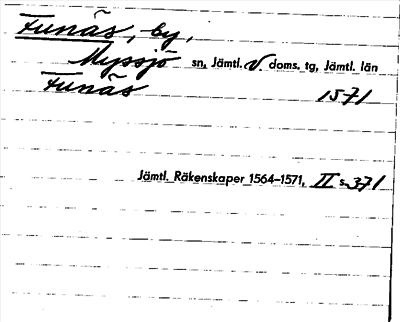 Funäs, by,
Myssjö sn, Jämtl. V. doms. tg, Jämtl. län
Funäs 1571
Jämtl. Räkenskaper 1564–1571, II s. 371